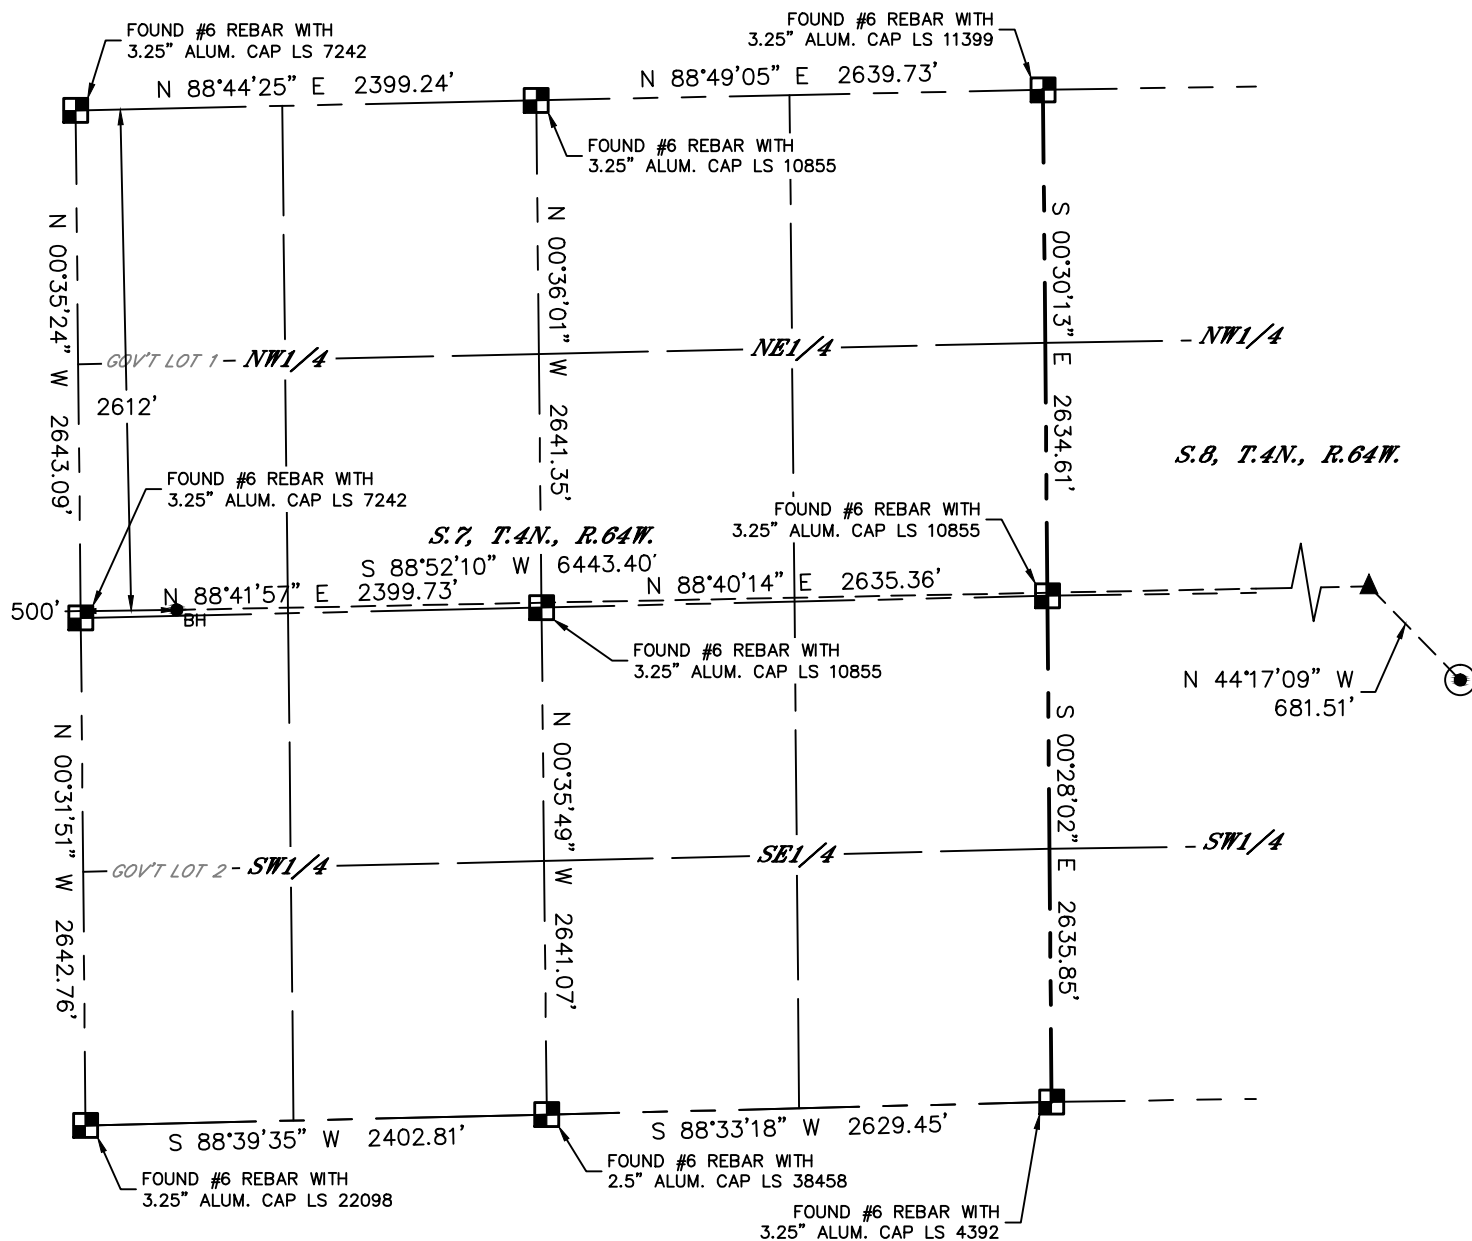 FOUND #6 REBAR WITH
3.25" ALUM. CAP LS 7242
FOUND #6 REBAR WITH
3.25" ALUM. CAP LS 11399
N 88°44'25" E 2399.24'
N 88°49'05" E 2639.73'
FOUND #6 REBAR WITH
3.25" ALUM. CAP LS 10855
N 00°35'24" W 2643.09'
N 00°36'01" W 2641.35'
S 00°30'13" E 2634.61'
GOV'T LOT 1
NW1/4
NE1/4
NW1/4
2612'
S.8, T.4N., R.64W.
FOUND #6 REBAR WITH
3.25" ALUM. CAP LS 7242
FOUND #6 REBAR WITH
3.25" ALUM. CAP LS 10855
S.7, T.4N., R.64W.
S 88°52'10" W 6443.40'
N 88°41'57" E 2399.73'
N 88°40'14" E 2635.36'
500'
BH
FOUND #6 REBAR WITH
3.25" ALUM. CAP LS 10855
N 44°17'09" W
681.51'
N 00°31'51" W 2642.76'
N 00°35'49" W 2641.07'
S 00°28'02" E 2635.85'
GOV'T LOT 2
SW1/4
SE1/4
SW1/4
S 88°39'35" W 2402.81'
S 88°33'18" W 2629.45'
FOUND #6 REBAR WITH
3.25" ALUM. CAP LS 22098
FOUND #6 REBAR WITH
2.5" ALUM. CAP LS 38458
FOUND #6 REBAR WITH
3.25" ALUM. CAP LS 4392